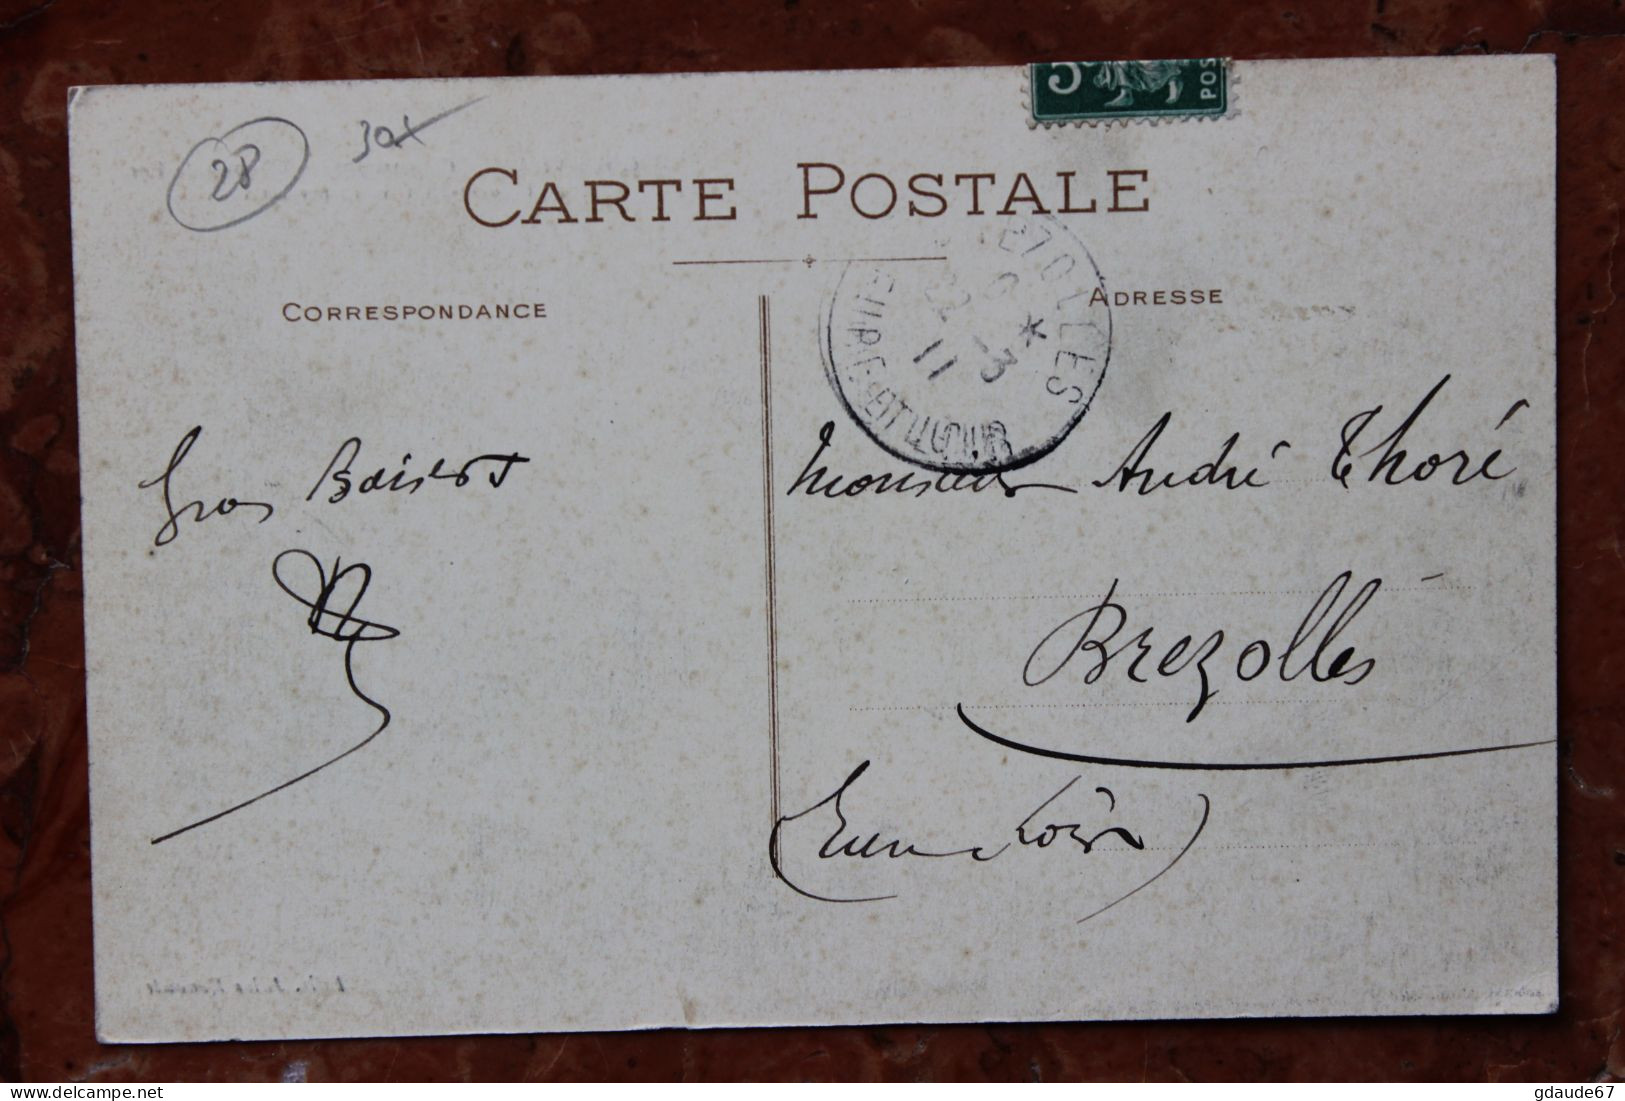 5
POS
28
30x
CARTE POSTALE
BREZOLLES
EURE-ET-LOIR
22 - 3
11
CORRESPONDANCE
ADRESSE
Gros Baisers
Monsieur André Thoré
Brezolles
(Eure et Loir)
delcampe.net
gdaude67